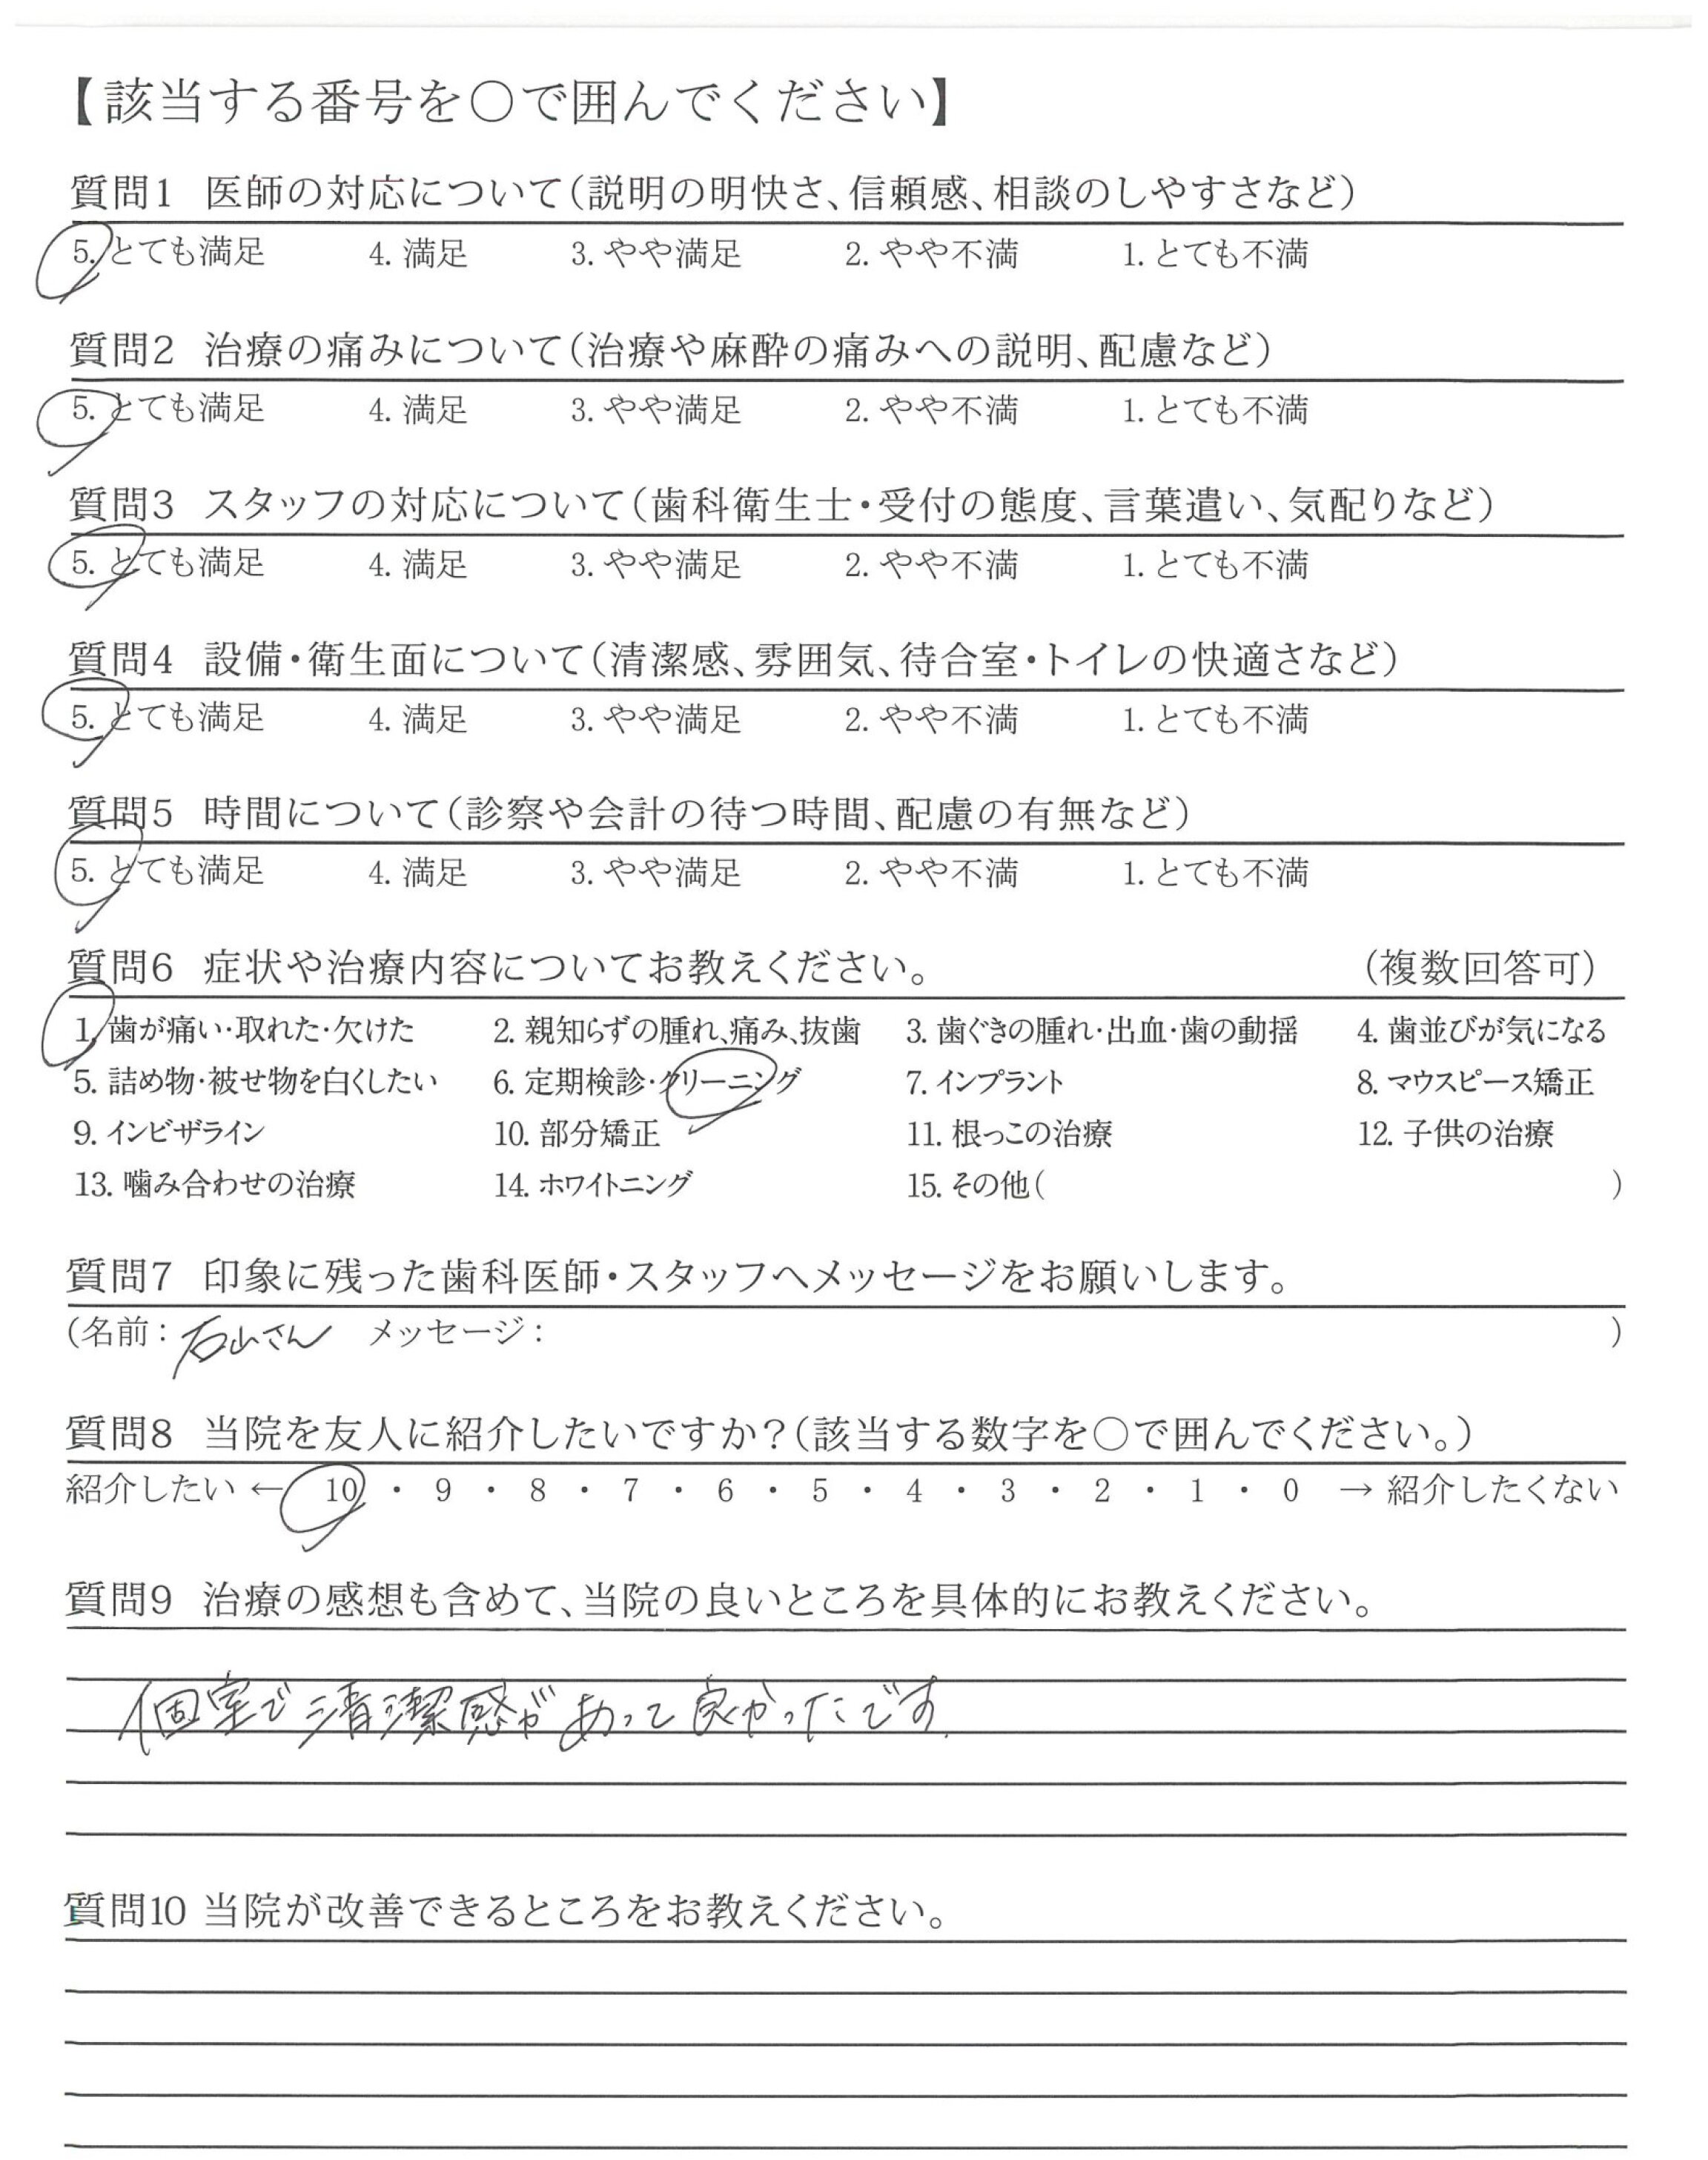 【該当する番号を〇で囲んでください】
質問1 医師の対応について(説明の明快さ、信頼感、相談のしやすさなど)
5. とても満足 4. 満足 3. やや満足 2. やや不満 1. とても不満
質問2 治療の痛みについて(治療や麻酔の痛みへの説明、配慮など)
5. とても満足 4. 満足 3. やや満足 2. やや不満 1. とても不満
質問3 スタッフの対応について(歯科衛生士・受付の態度、言葉遣い、気配りなど)
5. とても満足 4. 満足 3. やや満足 2. やや不満 1. とても不満
質問4 設備・衛生面について(清潔感、雰囲気、待合室・トイレの快適さなど)
5. とても満足 4. 満足 3. やや満足 2. やや不満 1. とても不満
質問5 時間について(診察や会計の待つ時間、配慮の有無など)
5. とても満足 4. 満足 3. やや満足 2. やや不満 1. とても不満
質問6 症状や治療内容についてお教えください。 (複数回答可)
1. 歯が痛い・取れた・欠けた 2. 親知らずの腫れ、痛み、抜歯 3. 歯ぐきの腫れ・出血・歯の動揺 4. 歯並びが気になる
5. 詰め物・被せ物を白くしたい 6. 定期検診・クリーニング 7. インプラント 8. マウスピース矯正
9. インビザライン 10. 部分矯正 11. 根っこの治療 12. 子供の治療
13. 噛み合わせの治療 14. ホワイトニング 15. その他( )
質問7 印象に残った歯科医師・スタッフへメッセージをお願いします。
(名前: 石山さん メッセージ: )
質問8 当院を友人に紹介したいですか?(該当する数字を〇で囲んでください。)
紹介したい ← 10 ・ 9 ・ 8 ・ 7 ・ 6 ・ 5 ・ 4 ・ 3 ・ 2 ・ 1 ・ 0 → 紹介したくない
質問9 治療の感想も含めて、当院の良いところを具体的にお教えください。
個室で清潔感があって良かったです.
質問10 当院が改善できるところをお教えください。